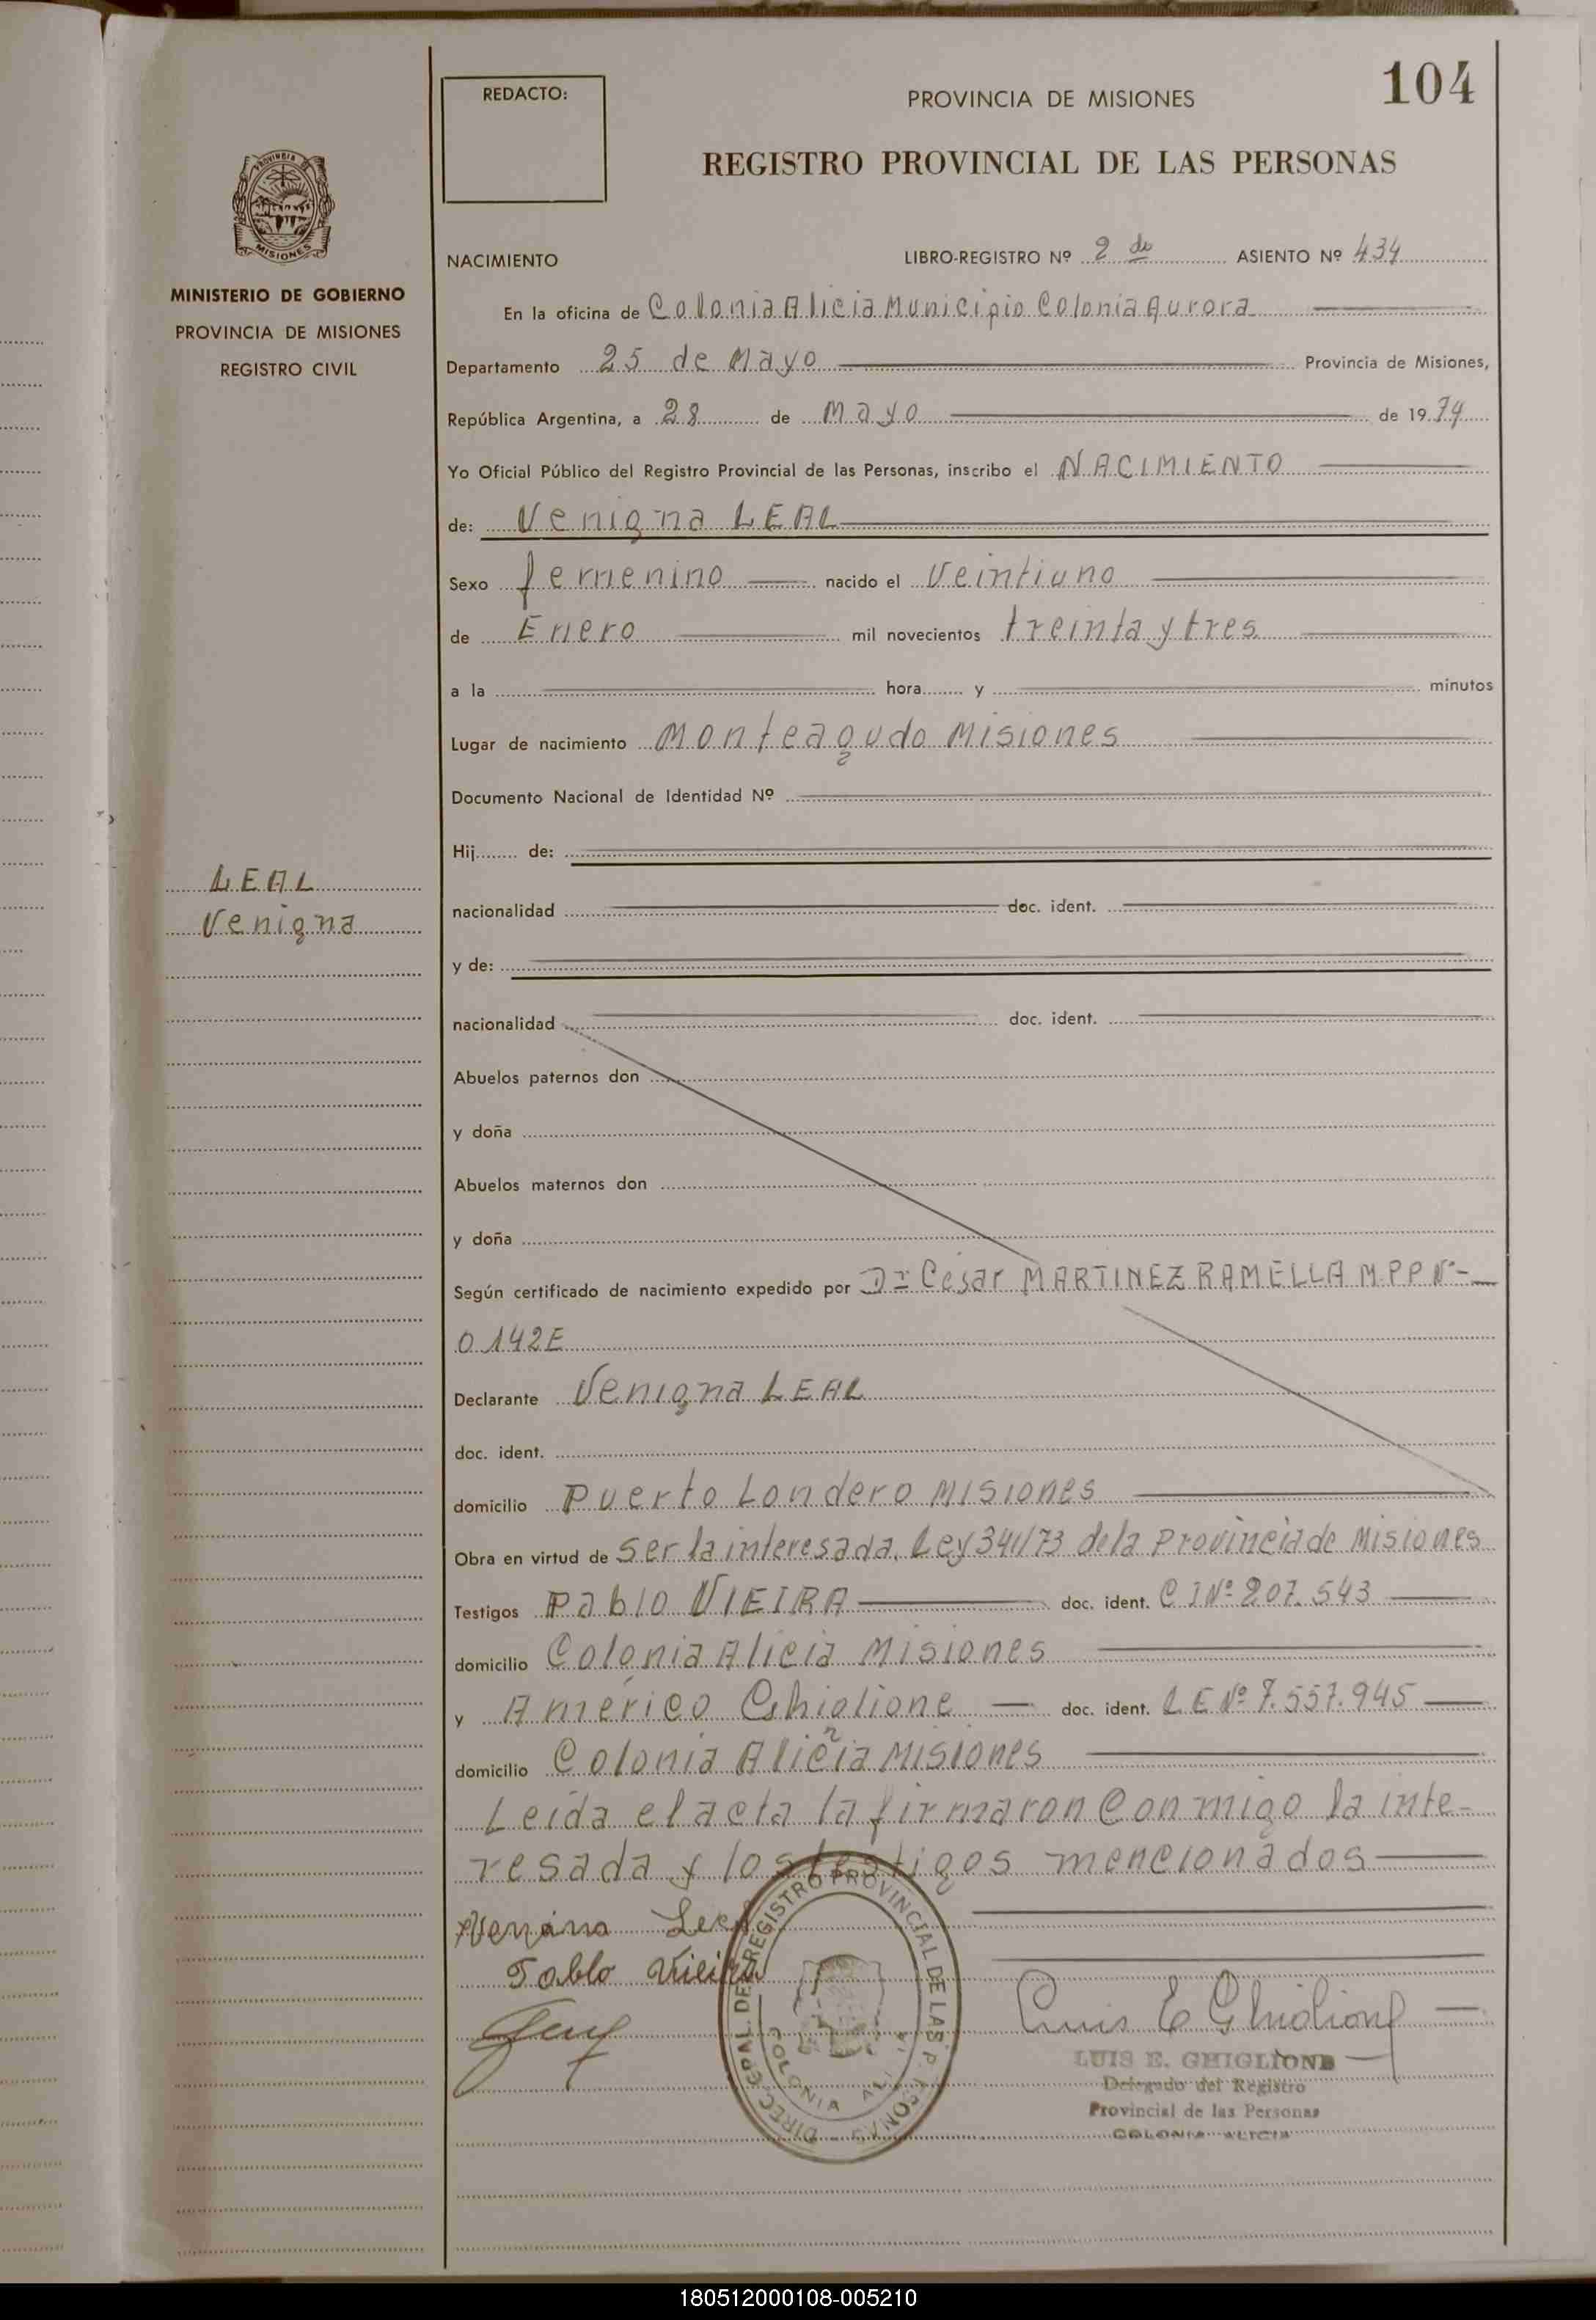 104
REDACTO:
PROVINCIA DE MISIONES
REGISTRO PROVINCIAL DE LAS PERSONAS
PROVINCIA DE
MISIONES
MINISTERIO DE GOBIERNO
PROVINCIA DE MISIONES
REGISTRO CIVIL
NACIMIENTO LIBRO-REGISTRO Nº 2 do ASIENTO Nº 434
En la oficina de Colonia Alicia Municipio Colonia Aurora
Departamento 25 de Mayo Provincia de Misiones,
República Argentina, a 28 de Mayo de 1974
Yo Oficial Público del Registro Provincial de las Personas, inscribo el NACIMIENTO
de: Venigna LEAL
Sexo femenino nacido el Veintiuno
de Enero mil novecientos treinta y tres
a la hora y minutos
Lugar de nacimiento Monteagudo Misiones
Documento Nacional de Identidad Nº
Hij de:
LEAL
Venigna
nacionalidad doc. ident.
y de:
nacionalidad doc. ident.
Abuelos paternos don
y doña
Abuelos maternos don
y doña
Según certificado de nacimiento expedido por Dr César MARTINEZ RAMELLA M.P.P Nº-
0.142E
Declarante Venigna LEAL
doc. ident.
domicilio Puerto Londero Misiones
Obra en virtud de ser la interesada. Ley 341/73 de la Provincia de Misiones
Testigos Pablo VIEIRA doc. ident. C I Nº 207.543
domicilio Colonia Alicia Misiones
y Américo Ghiglione doc. ident. L E Nº 7.557.945
domicilio Colonia Alicia Misiones
Leída el acta la firmaron conmigo la inte-
resada y los testigos mencionados
Leal
Pablo Vieira
Luis E Ghiglione
DIREC. GRAL. DEL REGISTRO PROVINCIAL DE LAS PERSONAS
COLONIA ALICIA
LUIS E. GHIGLIONE
Delegado del Registro
Provincial de las Personas
COLONIA ALICIA
180512000108-005210